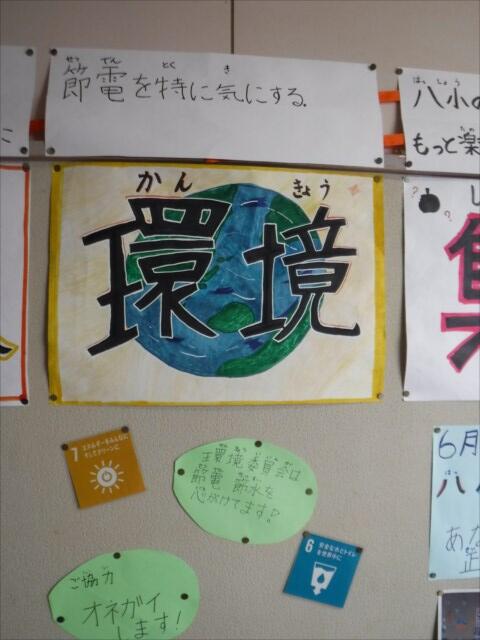 せつ でん とく き
節電を特に気にする.
に
はっしょう
八小の
もっと楽
かん きょう
環境
7 エネルギーをみんなに
そしてクリーンに
環境委員会は
節電 節水を
心がけてます!
6 安全な水とトイレ
を世界中に
ご協力
オネガイ
します!
6月
八
あな